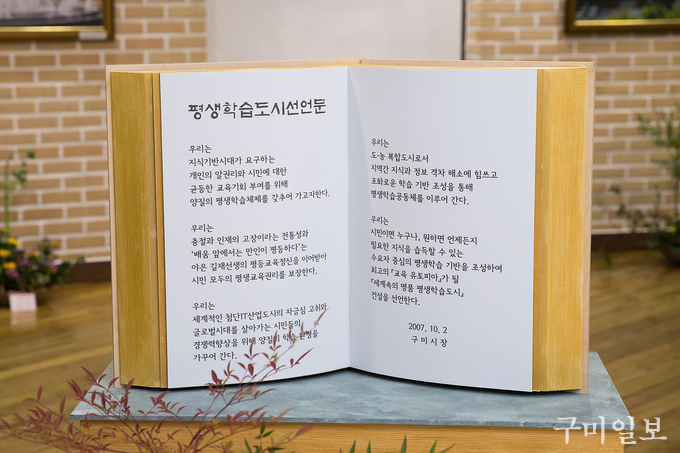 평생학습도시선언문
우리는
지식기반시대가 요구하는
개인의 알권리와 시민에 대한
균등한 교육기회 부여를 위해
양질의 평생학습체제를 갖추어 가고자한다.
우리는
충절과 인재의 고장이라는 전통성과
'배움 앞에서는 만인이 평등하다'는
야은 길재선생의 평등교육정신을 이어받아
시민 모두의 평생교육권리를 보장한다.
우리는
세계적인 첨단IT산업도시의 자긍심 고취와
글로벌시대를 살아가는 시민들의
경쟁력향상을 위해 양질의 학습 환경을
가꾸어 간다.
우리는
도·농 복합도시로서
지역간 지식과 정보 격차 해소에 힘쓰고
조화로운 학습 기반 조성을 통해
평생학습공동체를 이루어 간다.
우리는
시민이면 누구나, 원하면 언제든지
필요한 지식을 습득할 수 있는
수요자 중심의 평생학습 기반을 조성하여
최고의 『교육 유토피아』가 될
『세계속의 명품 평생학습도시』
건설을 선언한다.
2007. 10. 2
구미시장
구미일보